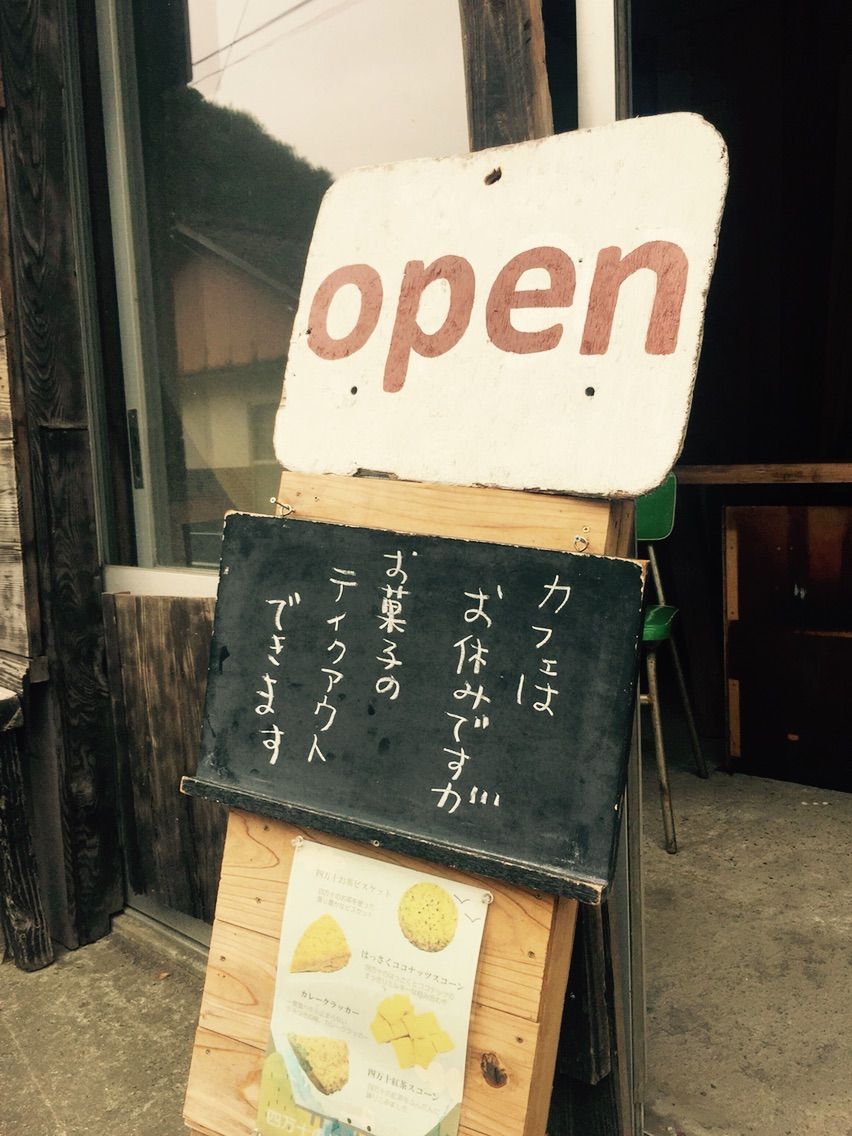 open
カフェは
お休みですが…
お菓子の
テイクアウト
できます
四万十お茶ビスケット
四万十のお茶を使った
はっさくココナッツスコーン
カレークラッカー
四万十紅茶スコーン
四万十